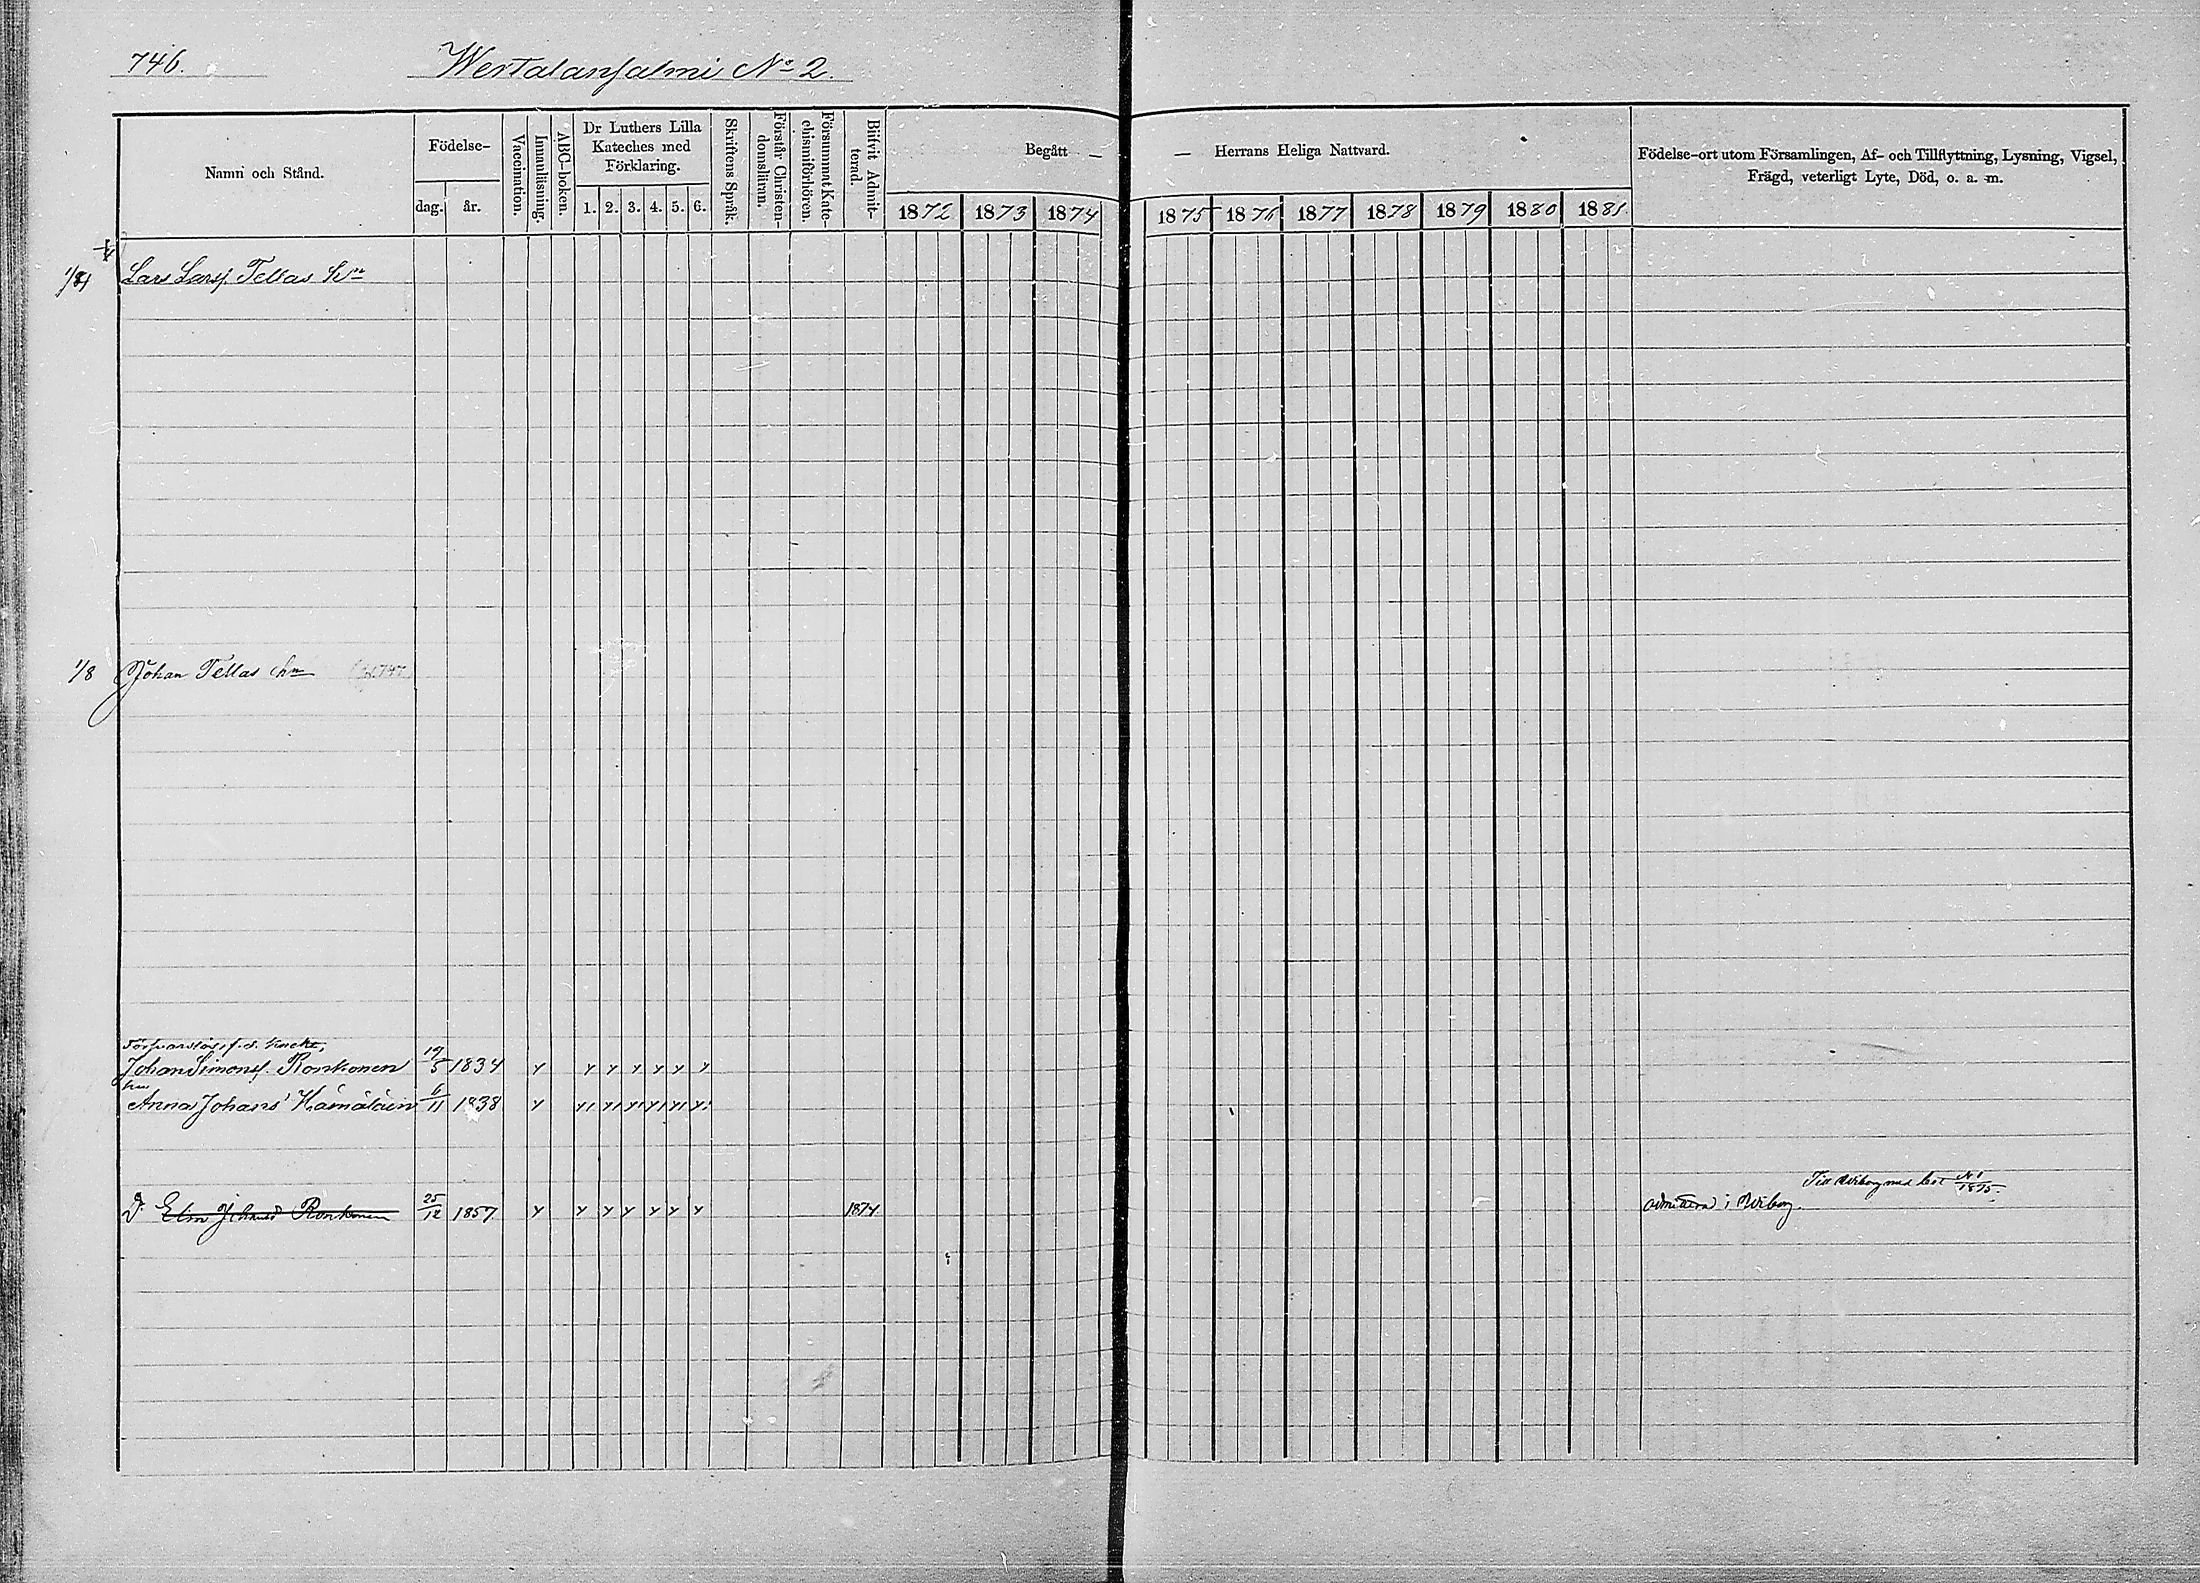 746. Wertalansalmi No 2.
Namn och Stånd.
Födelse-
dag.
år.
Vaccination.
Innanläsning.
ABC-boken.
Dr Luthers Lilla
Kateches med
Förklaring.
1. 2. 3. 4. 5. 6.
Skriftens Språk.
Förstår Christen-
domsläran.
Försummat Kate-
chismiförhören.
Blifvit Admit-
terad.
Begått — — Herrans Heliga Nattvard.
1872 1873 1874 1875 1876 1877 1878 1879 1880 1881.
Födelse-ort utom Församlingen, Af- och Tillflyttning, Lysning, Vigsel,
Frägd, veterligt Lyte, Död, o. a. m.
Lars Larsf. Tellas
1/8 Johan Tellas hn
Försvarslös, f. d. knekt,
Johan Simonsf. Ronkonen 19/5 1834
hu
Anna Johans' Hämäläin 6/11 1838
Till Wiborg med bet No 1/1875.
D. Elin Johansd Ronkonen 25/12 1857 1874 admitterad i Wiborg.